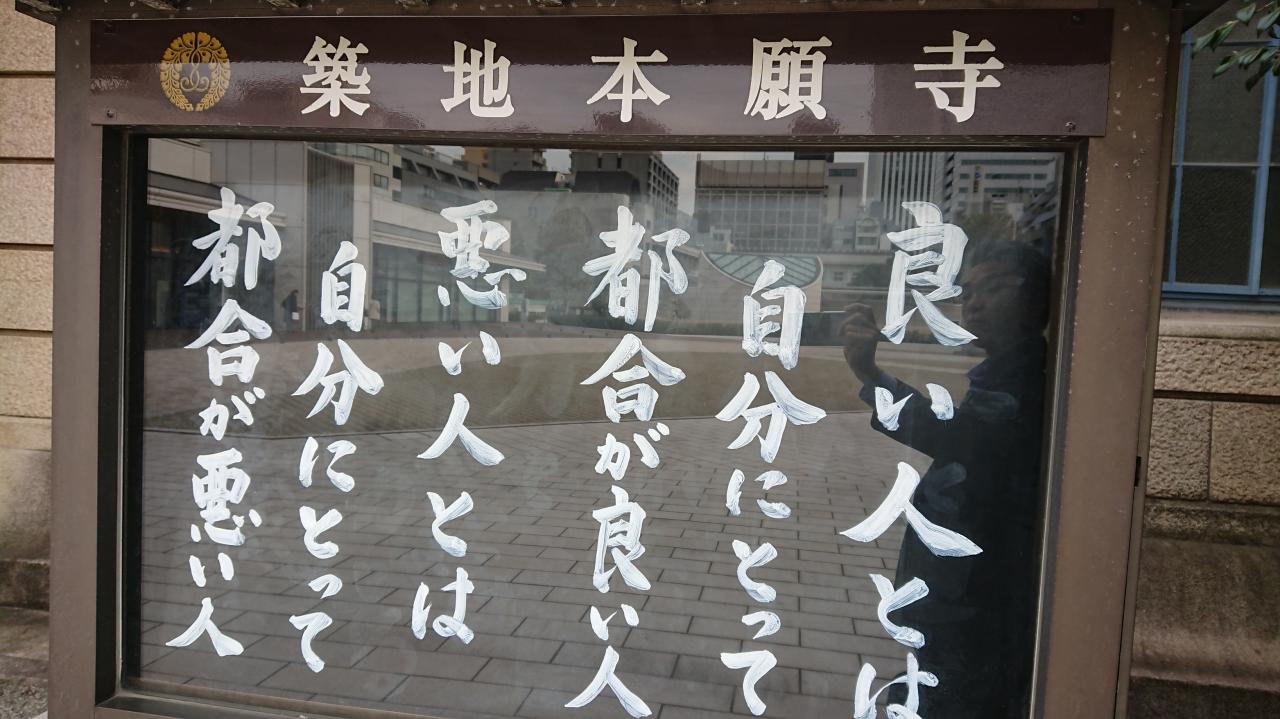 築地本願寺
良い人とは
自分にとって
都合が良い人
悪い人とは
自分にとって
都合が悪い人